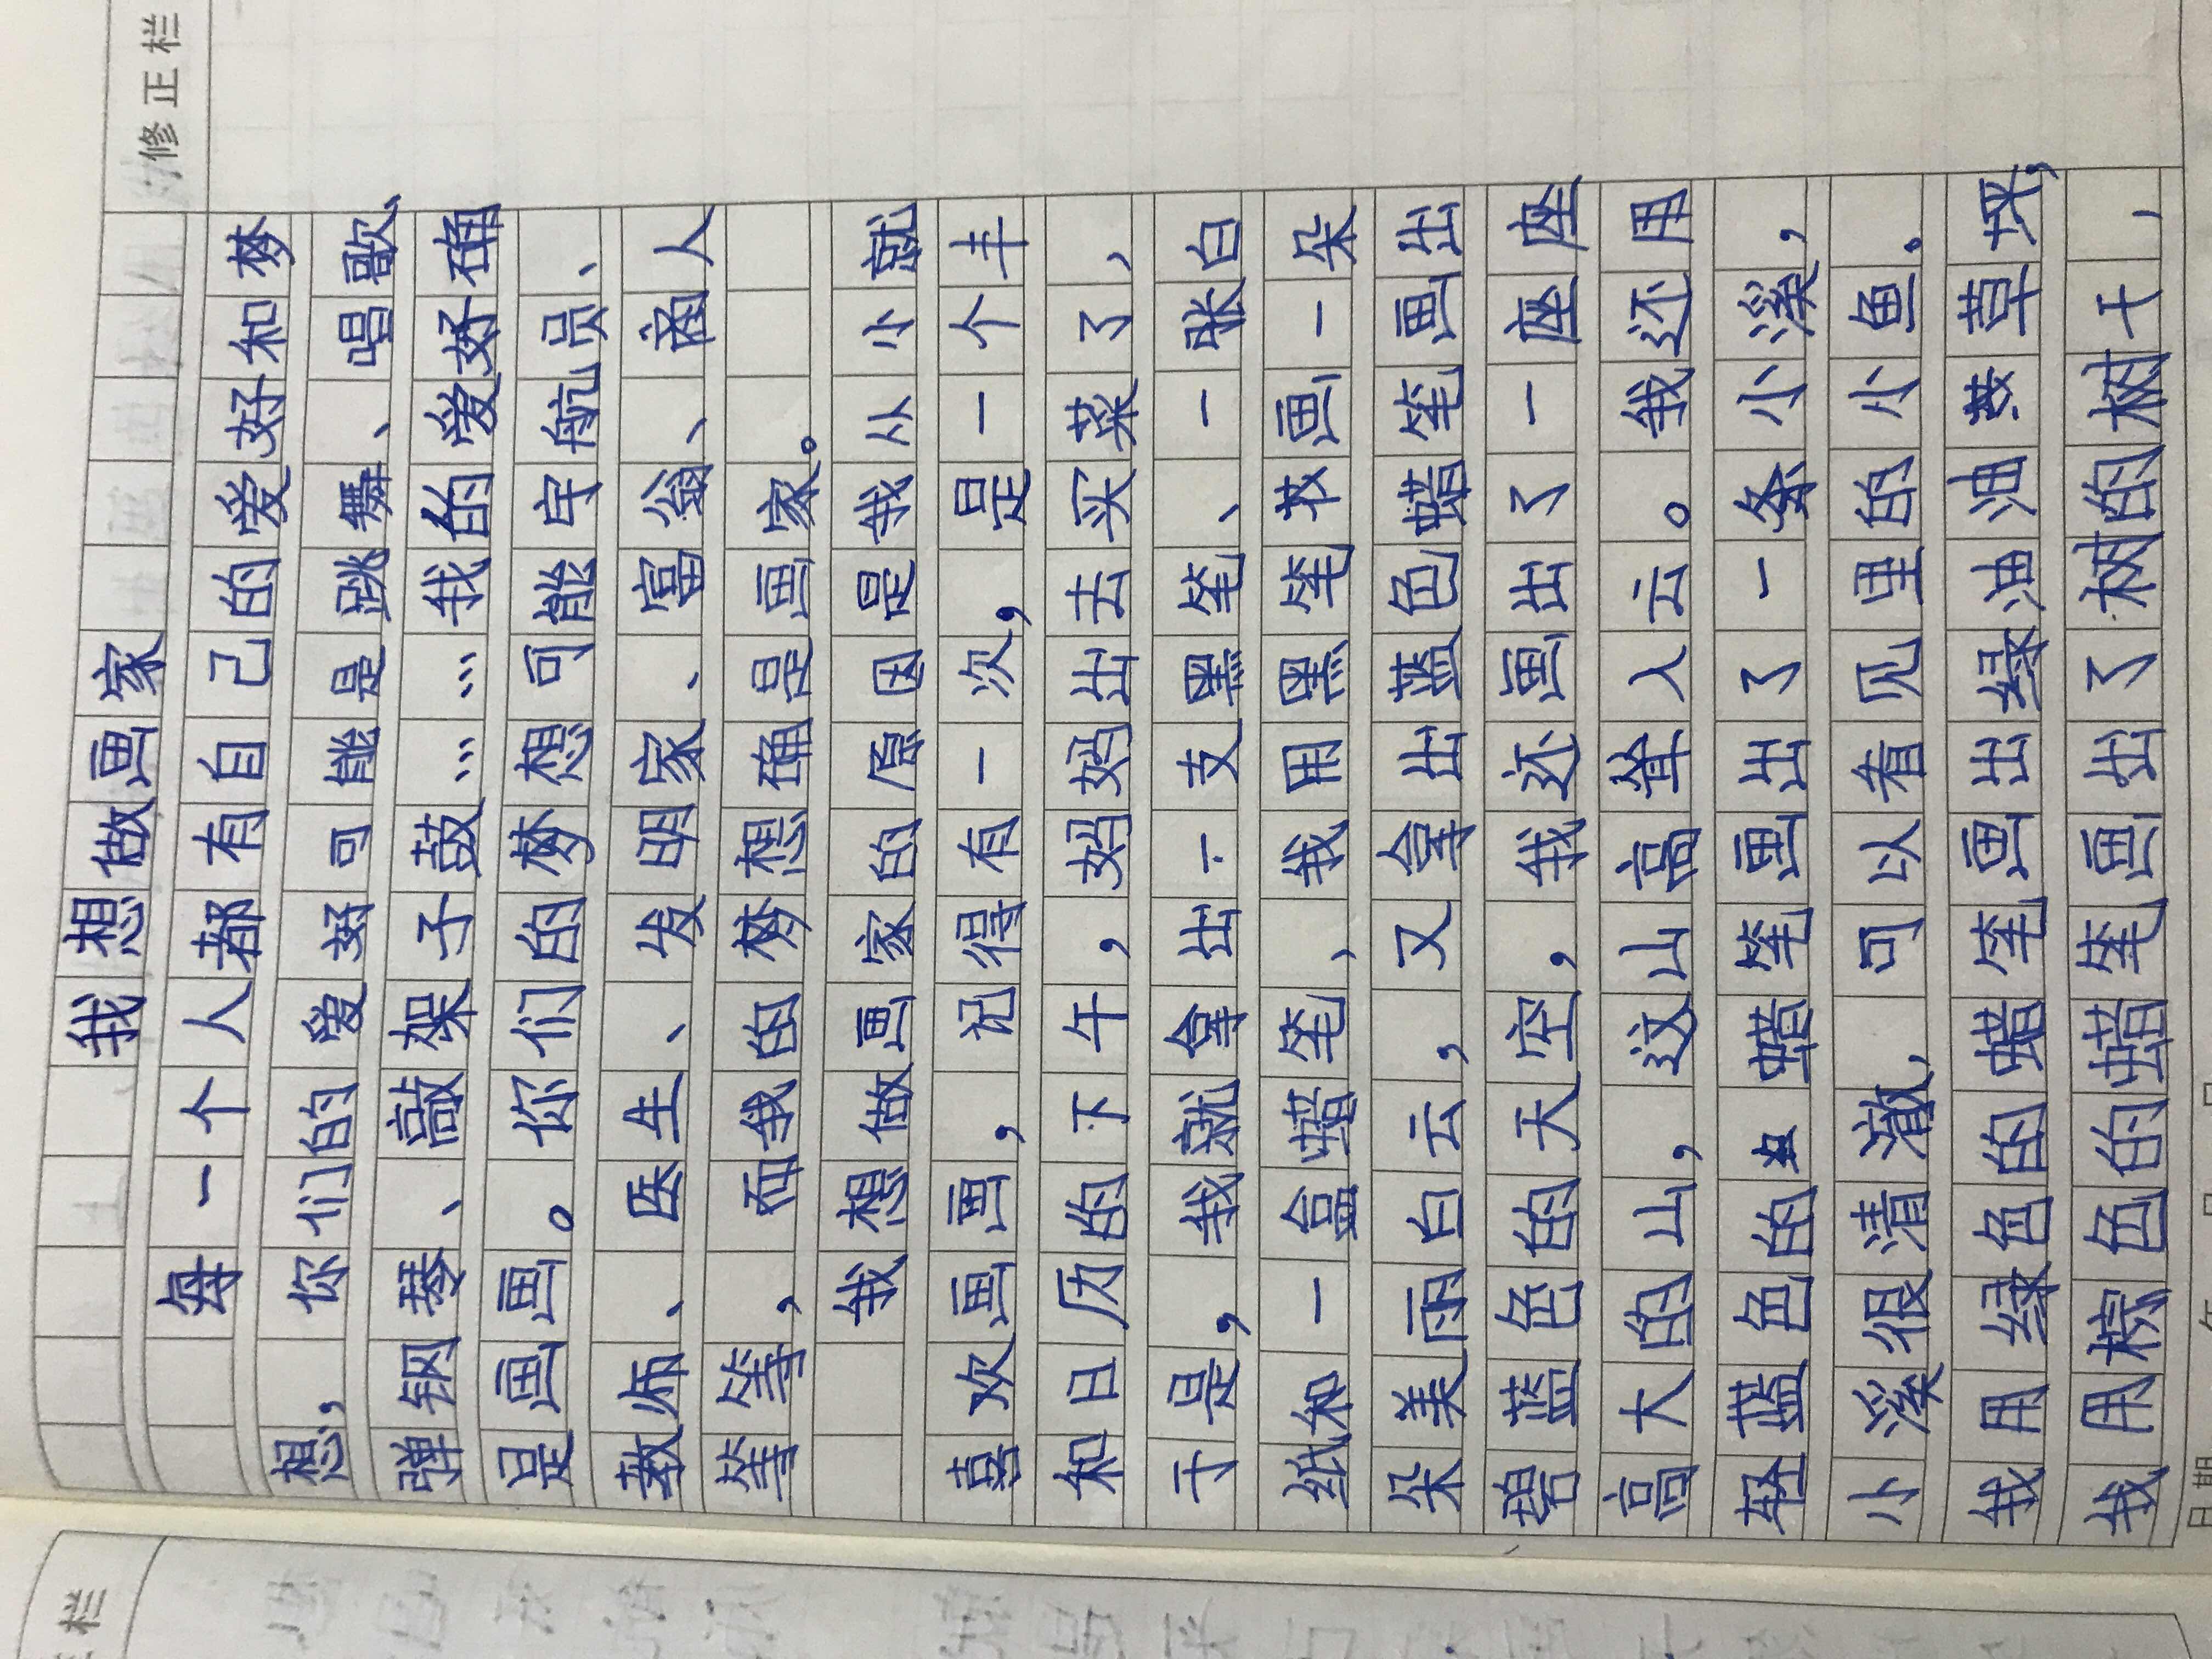 修正栏
我想做画家
每一个人都有自己的爱好和梦
想，你们的爱好可能是跳舞、唱歌、
弹钢琴、敲架子鼓……我的爱好确
是画画。你们的梦想可能宇航员、
教师、医生、发明家、富翁、商人
等等，而我的梦想确是画家。
我想做画家的原因是我从小就
喜欢画画，记得有一次，是一个丰
和日历的下午，妈妈出去买菜了，
于是，我就拿出一支黑笔、一张白
纸和一盒蜡笔，我用黑笔花画一朵
朵美丽白云，又拿出蓝色蜡笔画出
碧蓝色的天空，我还画出了一座座
高大的山，这山高耸人云。我还用
轻蓝色的蜡笔画出了一条小小溪，
小溪很清澈，可以看见里的小鱼。
我用绿色的蜡笔画出绿油油草坪，
我用棕色的蜡笔画出了树的树干，
日期
栏